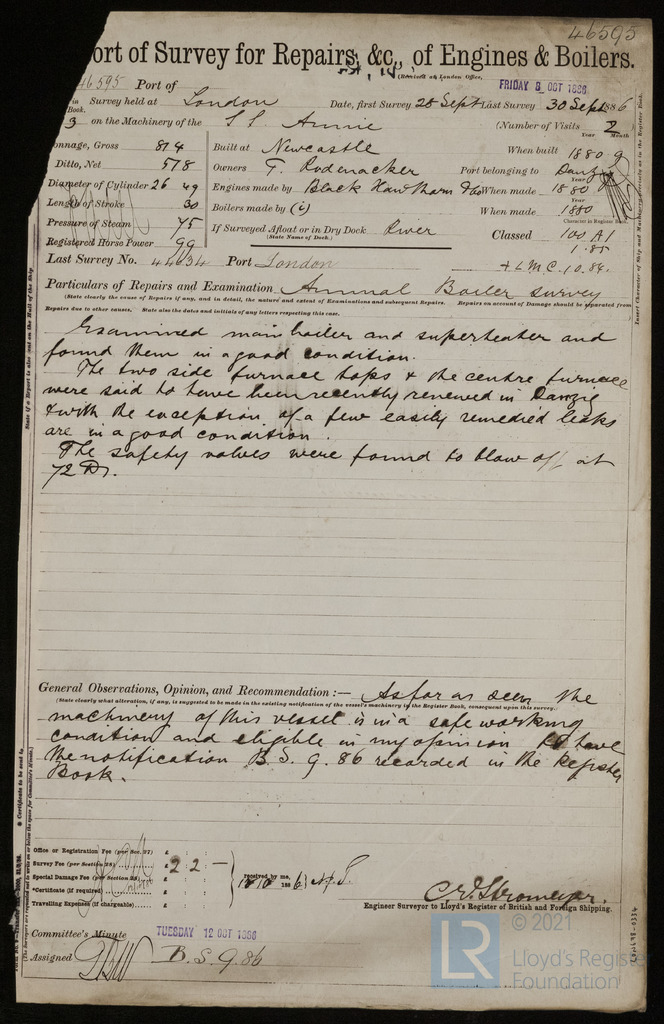 46595
ort of Survey for Repairs, &c., of Engines & Boilers.
(Received at London Office,
FRIDAY 8 OCT 1886
46595 Port of
in Survey held at London Date, first Survey 28 Sept Last Survey 30 Sept 1886
Book.
3 on the Machinery of the S S Annie (Number of Visits 2
Year Month
onnage, Gross 814 Built at Newcastle When built 1880 9
Ditto, Net 578 Owners T. Rodenacker Port belonging to Danzig
Diameter of Cylinder 26 49 Engines made by Black Hawthorn & Co When made 1880
Length of Stroke 30 Boilers made by (i) When made 1880
Pressure of Steam 75 If Surveyed Afloat or in Dry Dock River Classed 100 A1
(State Name of Dock.)
Character in Register Book.
Registered Horse Power 99
Last Survey No. 44634 Port London + L M C. 10.84.
Particulars of Repairs and Examination Annual Boiler survey
(State clearly the cause of Repairs if any, and in detail, the nature and extent of Examinations and subsequent Repairs. Repairs on account of Damage should be separated from
Repairs due to other causes. State also the dates and initials of any letters respecting this case.
Examined main boiler and superheater and
found them in a good condition.
The two side furnace tops & the centre furnace
were said to have been recently renewed in Danzig
& with the exception of a few easily remedied leaks
are in a good condition.
The safety valves were found to blow off at
72 lbs.
General Observations, Opinion, and Recommendation :— As far as seen the
(State clearly what alteration, if any, is suggested to be made in the existing notification of the vessel's machinery in the Register Book, consequent upon this survey.)
machinery of this vessel is in a safe working
condition and eligible in my opinion to have
the notification B. S. 9. 86 recorded in the Register
Book.
Office or Registration Fee (per Sec. 27) £
Survey Fee (per Section 28) £ 2 2 –
Special Damage Fee (per Section 28) £
*Certificate (if required) £
Travelling Expenses (if chargeable) £
received by me,
188
C. E. Stromeyer.
Engineer Surveyor to Lloyd's Register of British and Foreign Shipping.
Committee's Minute TUESDAY 12 OCT 1886
Assigned B. S. 9. 86
LR
© 2021
Lloyd's Register
Foundation